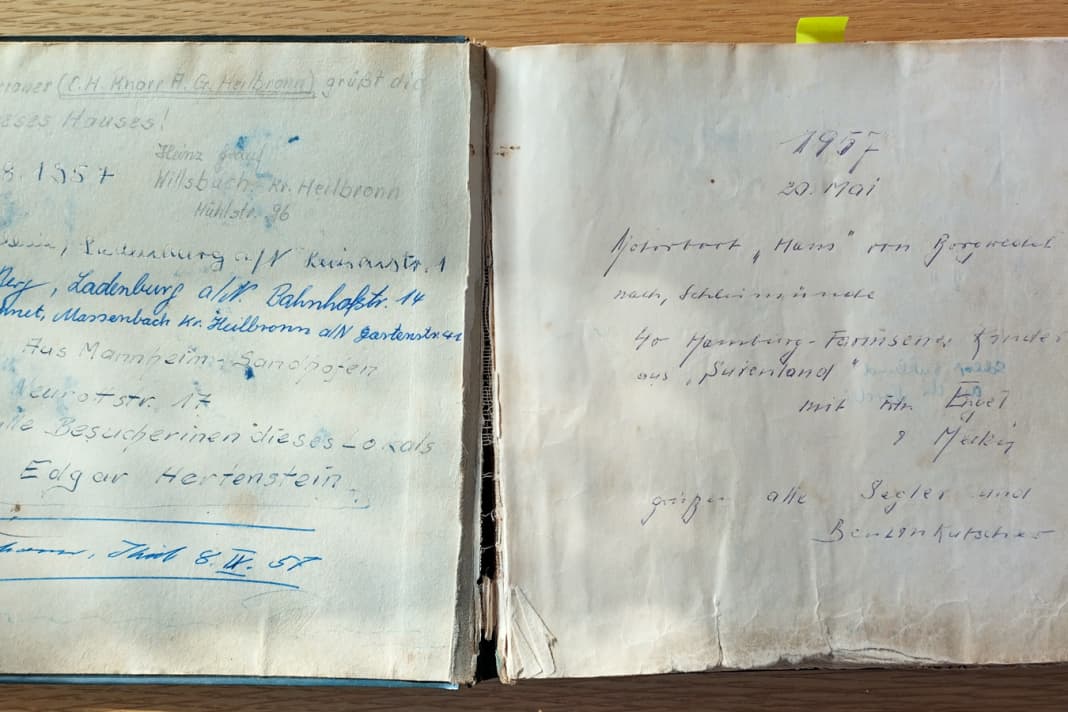 (C.H. Knorr A.G. Heilbronn) grüßt die
eses Hauses!
Heinz
8. 1957
Willsbach, Kr. Heilbronn
Mühlstr. 96
Ladenburg a/N
Ladenburg a/N. Bahnhofstr. 14
Massenbach Kr. Heilbronn a/N Gartenstr.
Aus Mannheim-Sandhofen
str. 17
Besucherinen dieses Lokals
Edgar Hertenstein
8. IX. 57
1957
20. Mai
Motorboot „Hans" von Borgwedel
nach, Schleimünde
40 Hamburg-Farmsener Kinder
aus „Surenland"
mit Engel
grüßen alle Segler und
Benzinkutscher